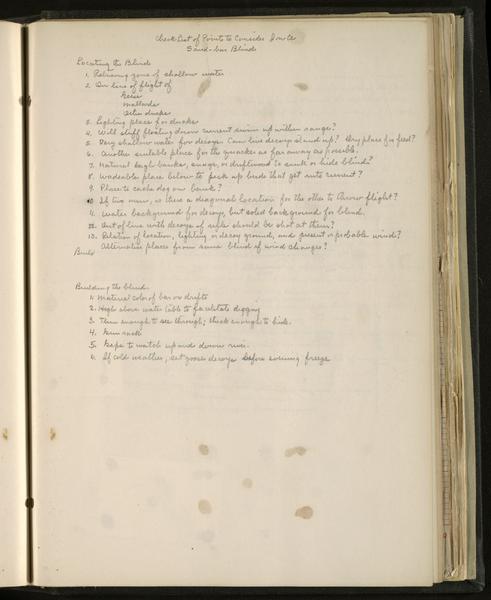 Check List of Points to Consider
Sand-bar Blinds
Locating the Blinds
1. Retrieving zone of shallow water
2. On line of flight of
Geese
Mallards
Other ducks
3. Lighting place for ducks
4. Will stuff floating down current swim up within range?
5. Very shallow water for decoys. Can live decoys stand up? Dry place for feed?
6. Another suitable place for the quacker as far away as possible.
7. Natural high banks, snags, or driftwood to sunk or hide blinds?
8. Wadeable place below to pick up birds that get into current?
9. Place to cache dog on bank?
10. If two men, is there a diagonal location for the other to flight?
11. Water background for decoys, but solid background for blind.
12. Out of line with decoys if should be shot at them?
13. Relation of location, lighting or decoy ground, and present or probable wind?
Alternative places from same blind if wind changes?
Build
Building the blind.
1. Natural color of bar or drifts
2. High above water table to facilitate digging
3. Thin enough to see through; thick enough to hide.
4. Gun rack
5. Gaps to watch up and down river.
6. If cold weather, set goose decoys before evening freeze